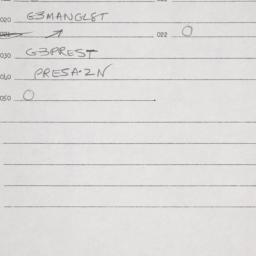 020 G3MANGL8T
021 022 O
030 G3PREST
040 PRESA·2N
050 O